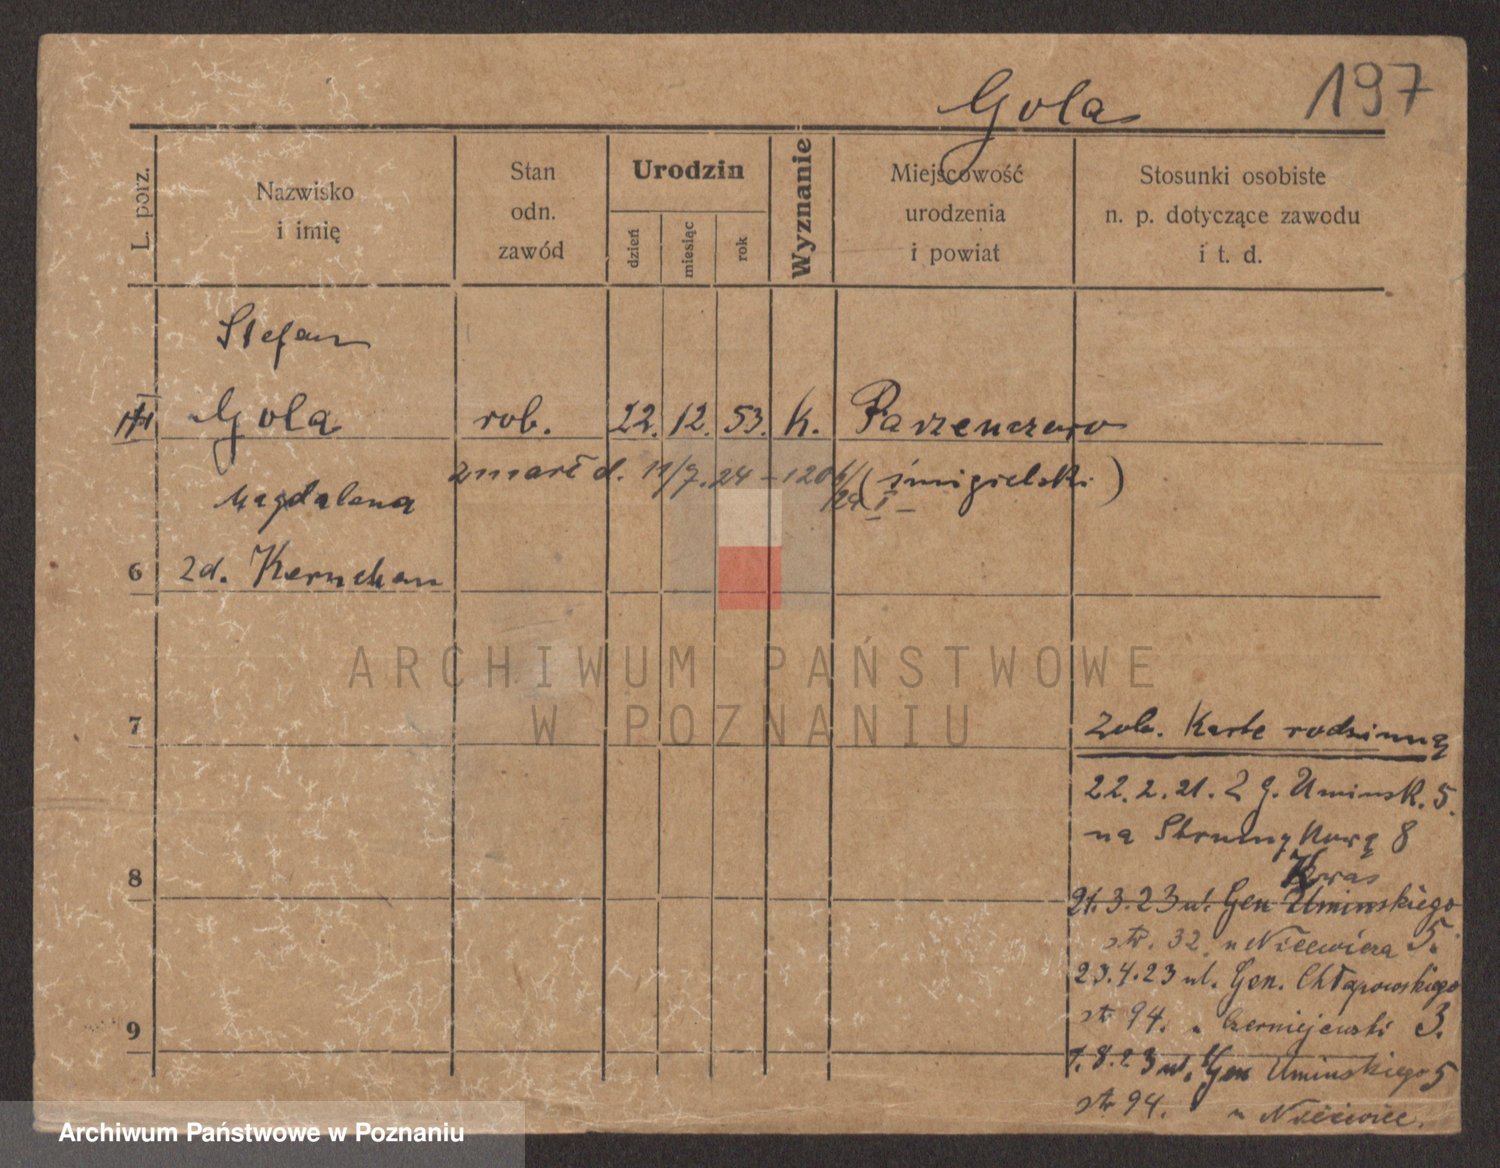 Gola 197
L. porz.
Nazwisko
i imię
Stan
odn.
zawód
Urodzin
dzień
miesiąc
rok
Wyznanie
Miejscowość
urodzenia
i powiat
Stosunki osobiste
n. p. dotyczące zawodu
i t. d.
Stefan
Gola rob. 22. 12. 53. k.
zmarł d. 24 - 120 (śmigielski)
Magdalena
6 zd.
7
Zob. Kartę rodzinną
22. 2. 21. Z g. Uminsk. 5.
na 8
8
21. 3. 23 ul. Gen Umińskiego
str. 32. 5.
23. 4. 23 ul. Gen. Chłapowskiego
str 94. u Czerniejewski 3.
9
1. 8. 23 ul. Gen Umińskiego 5
str 94. u
ARCHIWUM PAŃSTWOWE
W POZNANIU
Archiwum Państwowe w Poznaniu